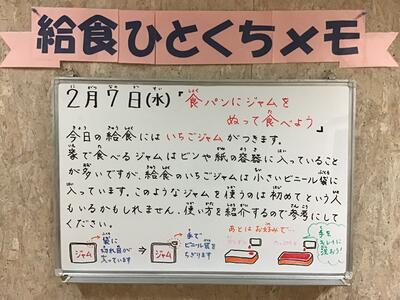 給食ひとくちメモ
2月7日(水)「食パンにジャムを
ぬって食べよう」
今日の給食にはいちごジャムがつきます。
家で食べるジャムはビンや紙の容器に入っていること
が多いですが、給食のいちごジャムは小さいビニール袋に
入っています。このようなジャムを使うのは初めてという人
もいるかもしれません。使い方を紹介するので参考にして
ください。
袋に
切れ目が
入っています
ジャム
手で
ビニール袋を
ちぎります
ジャム
あとはお好みで…
手を
きれいに
洗おう!